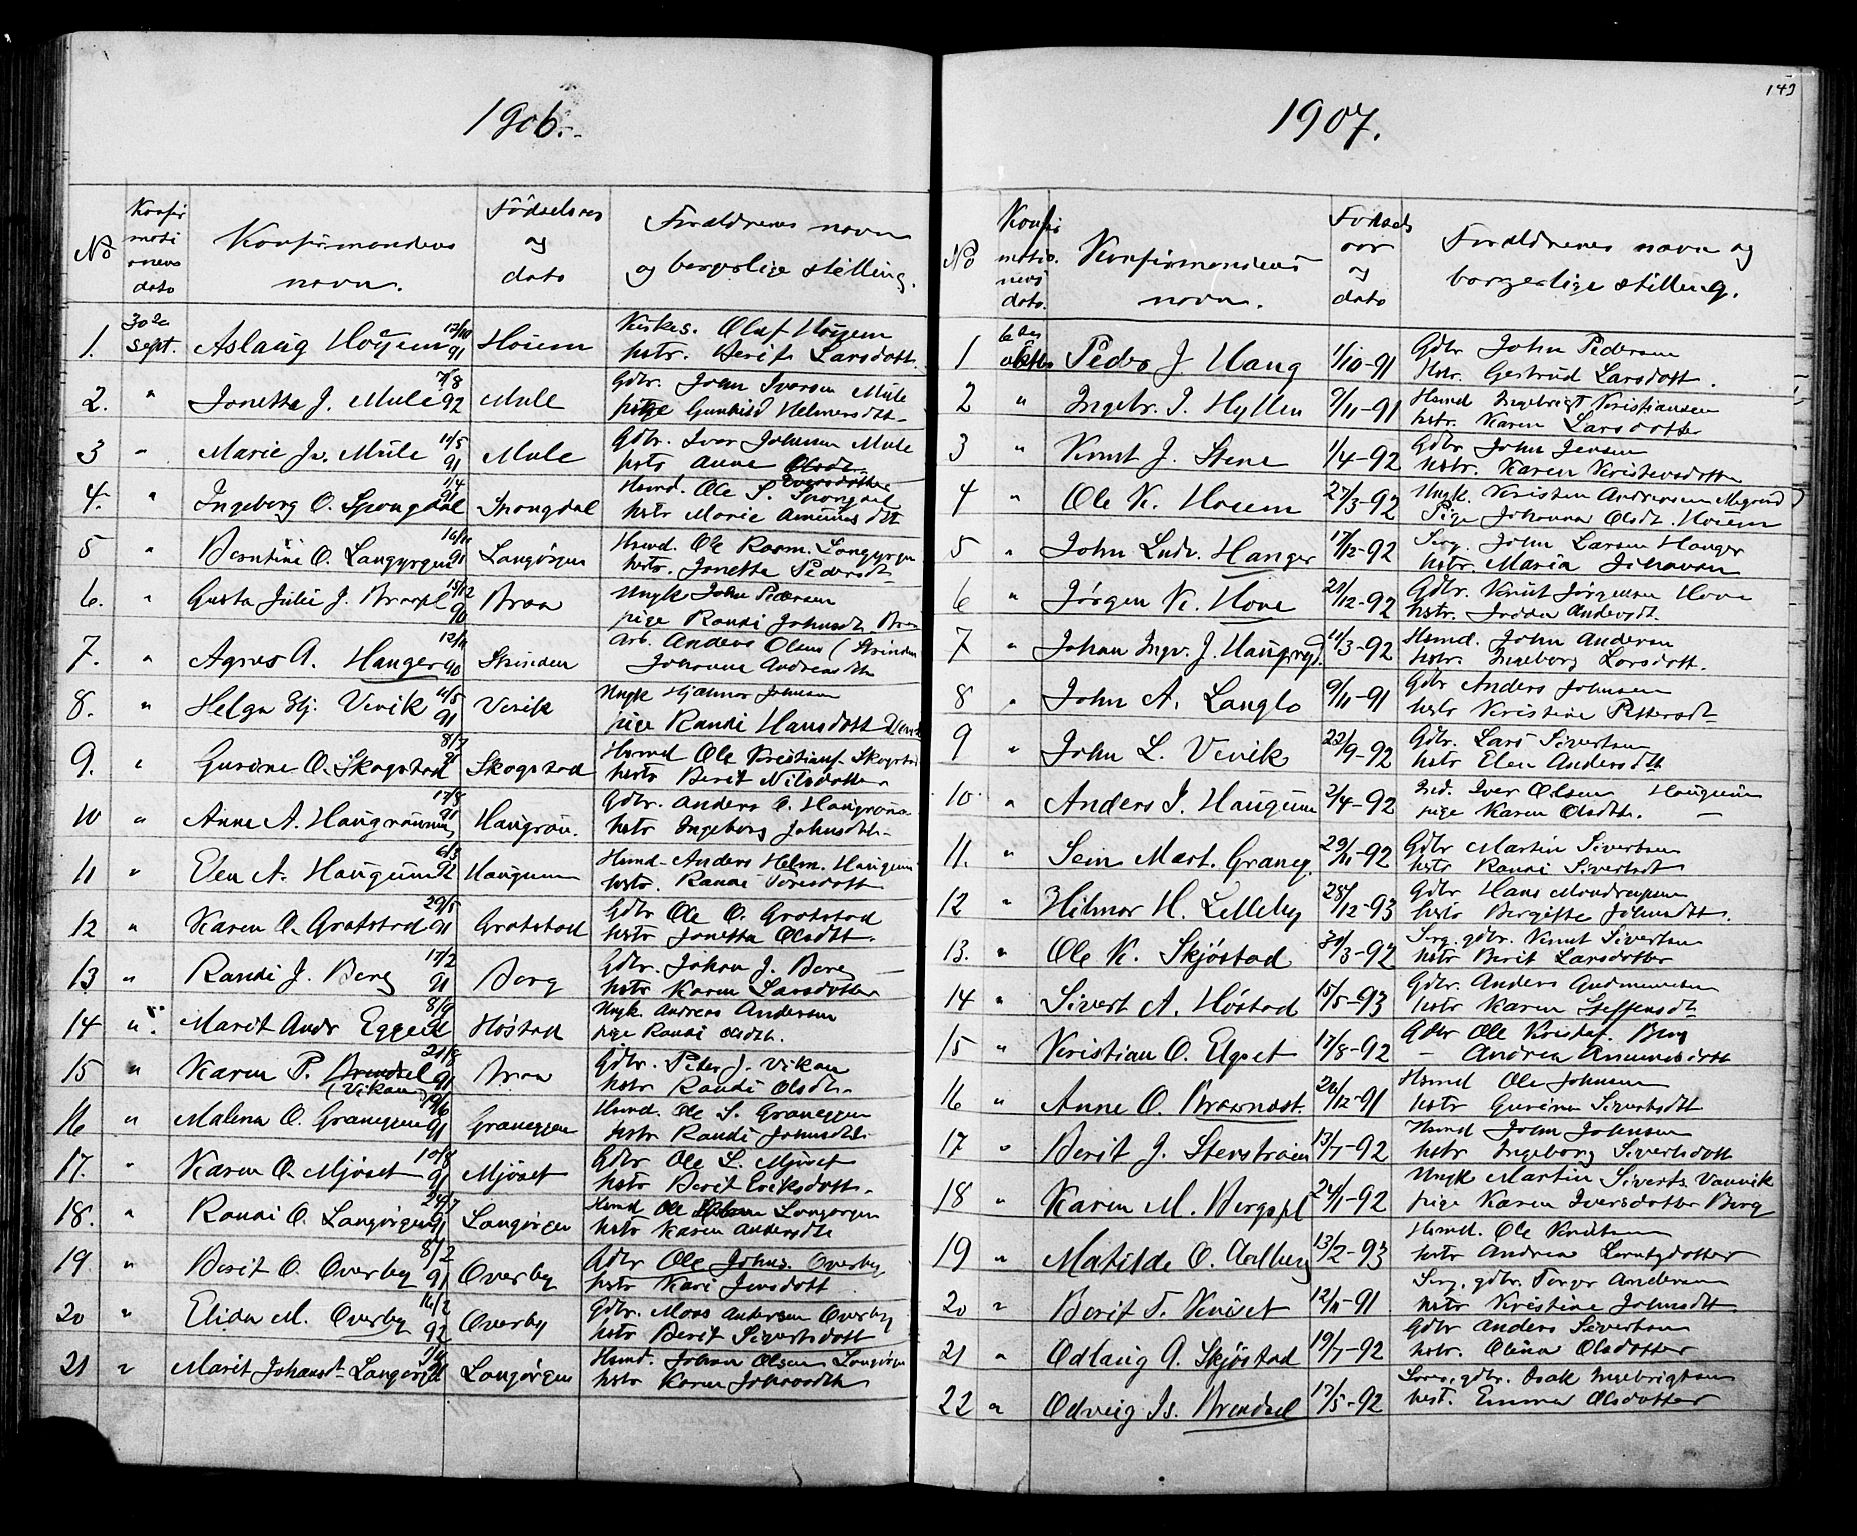 1906.
No
Konfir
mati
onens
dato
Konfirmandens
navn.
Fødselsaar
og
dato
Forældrenes navn
og borgerlige stilling.
1. 30te sept. Aslaug Høyem 12/10 91 Hoiem Kirkes. Olaf Höyem
hstr. Berit Larsdatt.
2. " Jonetta J. Mule 7/8 92 Mule Gdbr. John Iversen Mule
pige Gunhild Helmersdtt.
3 " Marie Iv. Mule 11/5 91 Mule Gdbr. Iver Johnsen Mule
hstr Anne Olsdt. Iversdatter
4. " Ingeborg O. Spongdal 1/4 91 Spongdal Hsmd. Ole S. Spongdal
hstr Marie Amunds dtt
5 " Berntine O. Langyrgen 91 Langørgen Hsmd. Ole Rasm. Langyrgen
hstr. Jonetta Pedersdt
6. " Gusta Julie J. Braapl 15/12 90 Braa Ungk John Pedersen
pige Randi Johnsdt Braa
7. " Agnes A. Hanger 12/11 90 Strinden Arb. Anders Olsen (Strinden
Johanne Andreasdtt
8. " Helga Hj. Vevik 11/5 91 Vevik Ungk Hjalmar Johnsen
pige Randi Hansdatt
9. " Gurine O. Skogstad 8/7 Skogstad Hsmd Ole Kristians. Skogstad
hstr Berit Nilsdatter
10 " Anne A. Haugrønning 17/8 91 Haugrøn. Gdbr. Anders O. Haugrønn
hstr Ingeborg Johnsdtt.
11 " Elen A. Haugum 6/3 92 Haugum Hsmd. Anders Helm. Haugum
hstr. Randi Toresdatt
12 " Karen O. Gratstad 29/5 91 Gratstad Gdbr Ole O. Gratstad
hstr Jonetta Olsdtt.
13 " Randi J. Berg 17/2 91 Berg Gdbr. Johan J. Berg
hstr Karen Larsdatter
14 " Marit Andr Eggen 8/9 91 Høstad Ungk. Andreas Andersen
pige Randi Olsdtt.
15 " Karen P. Brendsel (Vikan) 21/8 91 Braa Gdbr. Peter J. Vikan
hstr Randi Olsdtt.
16 " Malena O. Graneggen 19/6 91 Graneggen Hsmd. Ole S. Graneggen
hstr Randi Johnsdtt.
17. " Karen O. Mjøset 10/8 91 Mjøset Gdbr Ole L. Mjøset
hstr Berit Eriksdatt.
18. " Randi O. Langørgen 24/7 91 Langørgen Hsmd Ole Langørgen
hstr Karen Andersdtt
19 " Berit O. Overby 8/2 91 Overby Gdbr Ole Johns. Overby
hstr Kari Jensdatt
20 " Elida M. Overby 16/2 92 Overby Gdbr. Moas Andersen Overby
hstr Berit Sivertsdatt
21 " Marit Johansdt Langørgen 91 Langørgen Hsmd. Johan Olsen Langørgen
hstr Karen Johnsdtt
143
1907.
No
Konfir
matio.
nens
dato.
Konfirmandens
navn.
Fødsels
aar
og
dato
Forældrenes navn og
borgerlige stilling.
1 6te oktbr Peder J Haug 1/10-91 Gdbr John Pedersen
Hstr. Gertrud Larsdatt.
2 " Ingebr. I. Hyllen 9/11-91 Hsmd Ingebrigt Kristiansen
hstr. Karen Larsdatter
3 " Knut J. Stene 1/4-92 Gdbr John Jensen
hstr. Karen Kristensdatter
4 " Ole K. Hoiem 27/3-92 Ungk. Kristen Andreassen
Pige Johanna Olsdt. Hoiem
5 " John Ludv. Hanger 17/12-92 Serg. John Larsen Hanger
hstr. Maria Johansen
6 " Jørgen K. Hove 29/12-92 Gdbr. Knut Jørgensen Hove
hstr. Andersdt.
7 " Johan Ingv. J. Haugryd. 11/3-92 Hsmd. John Andersen
hstr. Ingeborg Larsdatt.
8 " John A. Langlo 9/11-91 Gdbr Anders Johnsen
hstr Kristine Pettersdt
9 " John L. Vevik 22/9-92 Gdbr. Lars Sivertsen
hstr Elen Andersdtt
10 " Anders I. Haugum 2/4-92 Iver Olsen Haugum
pige Karen Olsdtr.
11. " Sein Mart. Graneg. 29/11-92 Gdbr Martin Sivertsen
hstr Randi Sivertsdt
12 " Hilmar H. Lilleby 28/12-93 Gdbr Hans
hstr Bergitte Johnsdtt.
13. " Ole K. Skjøstad 31/3-92 Srg. gdbr. Knut Sivertsen
hstr Berit Larsdatter
14 " Sivert A. Høstad 15/5-93 Gdbr. Anders Gudmundsen
hstr Karen Steffensdt
15 " Kristian O. Elgset 17/8-92 Gdbr Ole Kristof. Berg
- Andrea Amundsdatt
16 " Anne O. 26/12-91 Hsmd Ole Johnsen
hstr Gurine Sivertsdtt
17 " Berit J. Stenstrøien 13/7-92 Hsmd John Johnsen
hstr Ingeborg Sivertsdatt
18 " Karen M. Bergspl 24/1-92 Ungk Martin Siverts. Vanvik
pige Karen Iversdatter Berg
19 " Matilde O. Aalberg 13/2-93 Hsmd. Ole Knutsen
hstr Andrea Lorntsdatter
20 " Berit T. Kvist 12/11-91 Srg. gdbr. Torger Andersen
hstr Kristine Johnsdtt.
21 " Odlaug A. Skjøstad 19/7-92 Gdbr Anders Sivertsen
hstr. Olina Olsdatter
22 " Odveig Is. Brendsel 17/5-92 gdbr. Isak Ingebrigtsen
hst. Emma Olsdatter